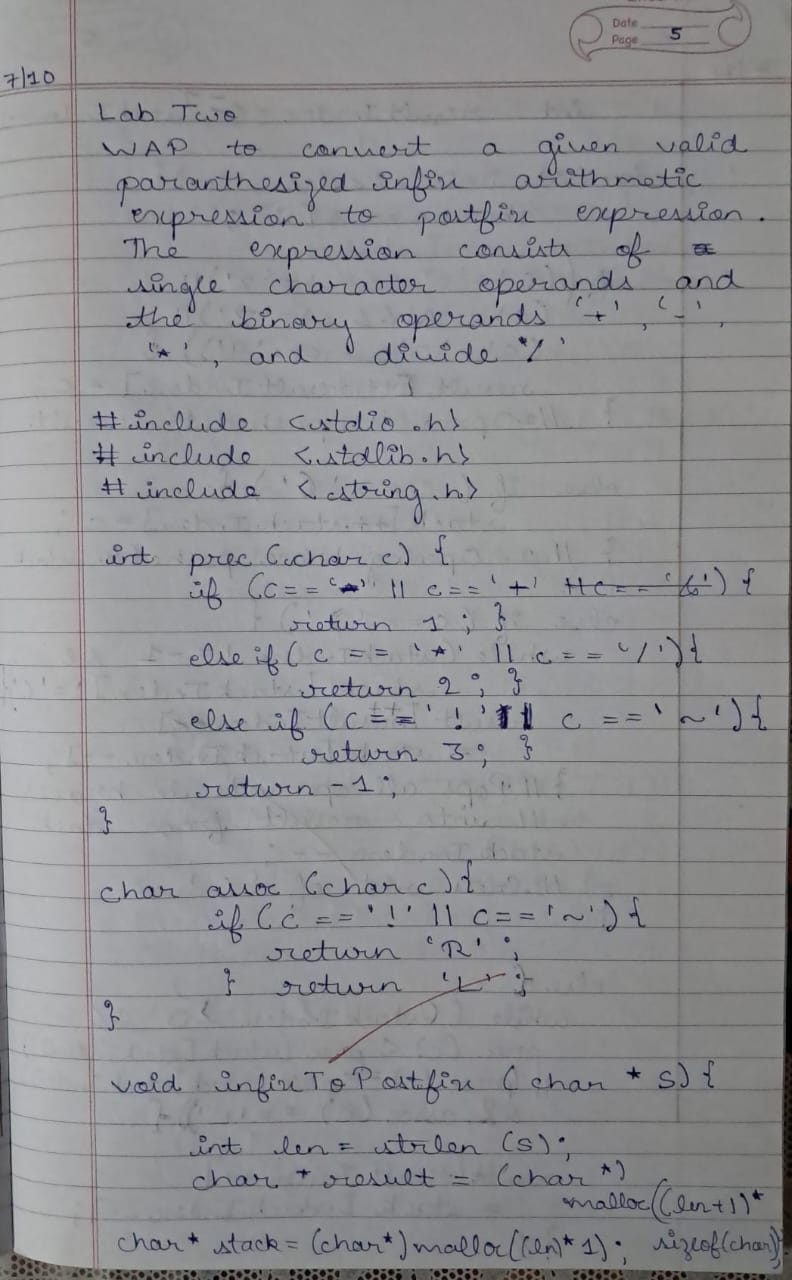 Date
Page 5
7/10
Lab Two
WAP to convert a given valid
paranthesized infix arithmetic
expression to postfix expression.
The expression consists of
single character operands and
the binary operands '+', '-',
'*', and divide '/'
#include <stdio.h>
#include <stdlib.h>
#include <string.h>
int prec (char c) {
if (c== '-' || c=='+' || c== '%') {
return 1; }
else if (c == '*' || c == '/'){
return 2; }
else if (c=='!' || c =='~'){
return 3; }
return -1;
}
char assoc (char c){
if (c == '!' || c=='~') {
return 'R';
} return 'L' ; }
}
void infixToPostfix (char * s) {
int len = strlen (s);
char * result = (char *)
malloc((len+1)*
char* stack = (char*) malloc((len)*1); sizeof(char));